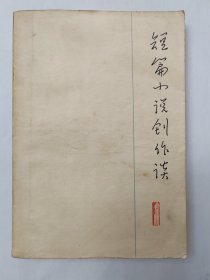 短篇小说创作谈